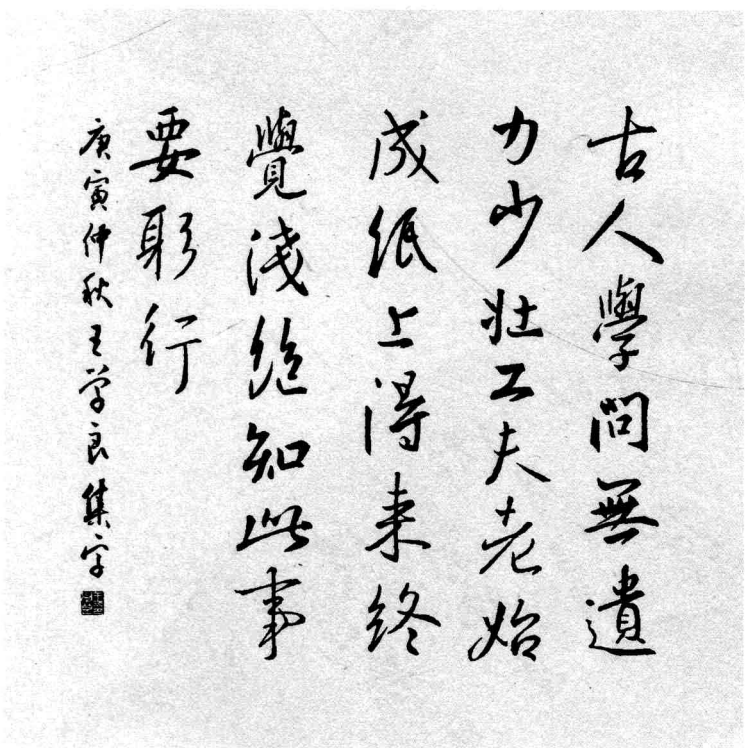 古人學問無遺
力少壯工夫老始
成紙上得来終
覺淺絶知此事
要躬行
庚寅仲秋王学良集字